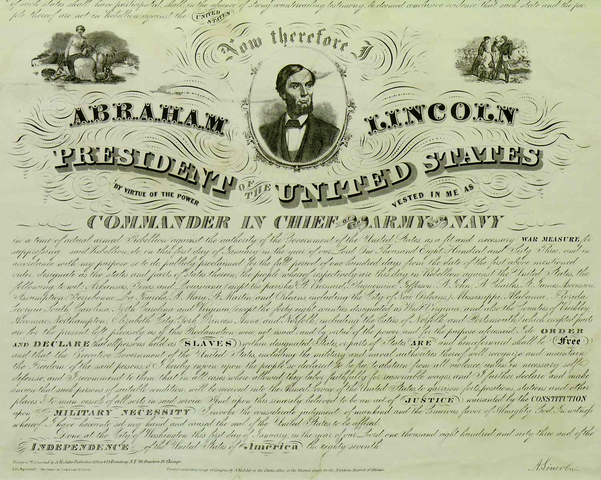 of such states shall have participated, shall in the absence of strong countervailing testimony, be deemed conclusive evidence that such state and the peo-
ple thereof are not in Rebellion against the UNITED STATES
Now therefore I
ABRAHAM LINCOLN
PRESIDENT OF THE UNITED STATES
BY VIRTUE OF THE POWER VESTED IN ME AS
COMMANDER IN CHIEF OF THE ARMY AND NAVY
in a time of actual armed Rebellion against the authority of the Government of the United States as a fit and necessary WAR MEASURE, for
suppressing said Rebellion, do on this first day of January in the year of our Lord One Thousand Eight Hundred and Sixty Three, and in
accordance with my purpose so to do, publicly proclaimed for the full period of one hundred days from the date of the first above mentioned
order, designate as the states and parts of States therein, the people whereof respectively are this day in Rebellion against the United States, the
following, to wit, Arkansas, Texas and Louisiana (except the parishes of St Bernard, Plaquemine, Jefferson, St John, St Charles, St James, Ascension
Assumption, Terrebonne, La Fourche, St Mary, St Martin and Orleans, including the City of New Orleans) Mississippi, Alabama, Florida,
Georgia, South Carolina, North Carolina and Virginia, (except the forty eight counties designated as West Virginia, and also the Counties of Berkley
Accomac, Northampton, Elizabeth City, York, Princess Anne and Norfolk, including the Cities of Norfolk and Portsmouth) which excepted parts
are for the present left precisely as if this Proclamation were not issued, and by virtue of the power and for the purpose aforesaid I do ORDER
AND DECLARE that all persons held as SLAVES within designated States, or parts of States ARE and henceforward shall be Free
and that the Executive Government of the United States, including the military and naval authorities thereof will recognize and maintain
the Freedom of the said persons, & I hereby enjoin upon the people so declared to be free to abstain from all violence, unless in necessary self-
defence, and I recommend to them that in all cases when allowed they labor faithfully for reasonable wages, and I further declare and make
known that such persons of suitable condition will be received into the armed service of the United States to garrison forts, positions, stations and other
places & to man vessels of all sorts in said service. And upon this sincerely believed to be an act of JUSTICE, warranted by the CONSTITUTION
upon MILITARY NECESSITY, I invoke the considerate judgment of mankind and the Gracious favor of Almighty God. In witness
whereof I have hereunto set my hand and caused the seal of the United States to be affixed.
Done at the City of Washington this first day of January, in the year of our Lord one thousand eight hundred and sixty three and of the
INDEPENDENCE of the United States of America the eighty seventh
A. Lincoln